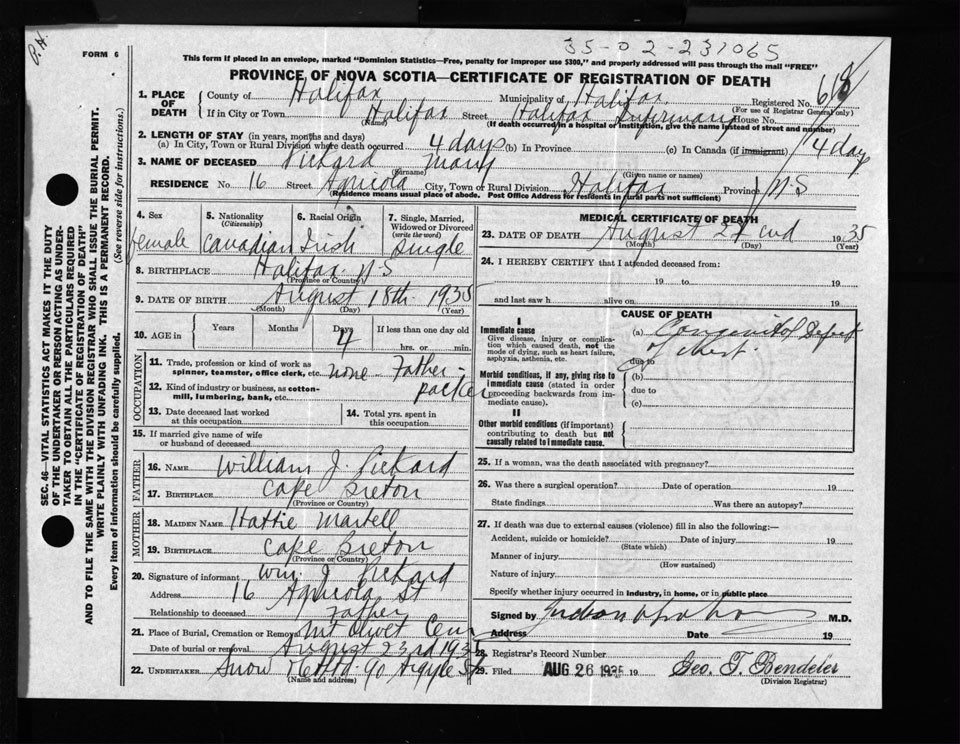 P.H.
FORM 6
35-02-237065
This form if placed in an envelope, marked "Dominion Statistics—Free, penalty for improper use $300," and properly addressed will pass through the mail "FREE"
PROVINCE OF NOVA SCOTIA—CERTIFICATE OF REGISTRATION OF DEATH
1. PLACE OF DEATH
County of Halifax Municipality of Halifax Registered No.
(For use of Registrar General only)
If in City or Town Halifax Street Halifax Infirmary House No.
(Name) (If death occurred in a hospital or institution, give the name instead of street and number)
2. LENGTH OF STAY (in years, months and days)
(a) In City, Town or Rural Division where death occurred 4 days (b) In Province (c) In Canada (if immigrant) 4 day
3. NAME OF DECEASED Pickard Mary
(Surname) (Given name or names)
RESIDENCE No. 16 Street Agricola City, Town or Rural Division Halifax Province N.S
(Residence means usual place of abode. Post Office Address for residents in rural parts not sufficient)
SEC. 46—VITAL STATISTICS ACT MAKES IT THE DUTY
OF THE UNDERTAKER OR PERSON ACTING AS UNDER-
TAKER TO OBTAIN ALL THE PARTICULARS REQUIRED
IN THE "CERTIFICATE OF REGISTRATION OF DEATH"
AND TO FILE THE SAME WITH THE DIVISION REGISTRAR WHO SHALL ISSUE THE BURIAL PERMIT.
WRITE PLAINLY WITH UNFADING INK. THIS IS A PERMANENT RECORD.
Every item of information should be carefully supplied. (See reverse side for instructions.)
4. Sex
female
5. Nationality
(Citizenship)
Canadian
6. Racial Origin
Irish
7. Single, Married,
Widowed or Divorced
(write the word)
Single
8. BIRTHPLACE Halifax N.S
(Province or Country)
9. DATE OF BIRTH August 18th 1935
(Month) (Day) (Year)
10. AGE in
Years Months Days If less than one day old
4 hrs. or min.
OCCUPATION
11. Trade, profession or kind of work as
spinner, teamster, office clerk, etc. none Father -
12. Kind of industry or business, as cotton- packer
mill, lumbering, bank, etc.
13. Date deceased last worked
at this occupation
14. Total yrs. spent in
this occupation
15. If married give name of wife
or husband of deceased
FATHER
16. NAME William J. Pickard
17. BIRTHPLACE Cape Breton
(Province or Country)
MOTHER
18. MAIDEN NAME Hattie Martell
19. BIRTHPLACE Cape Breton
(Province or Country)
20. Signature of informant Wm J. Pickard
Address 16 Agricola St
Relationship to deceased Father
21. Place of Burial, Cremation or Removal Mt Olivet Cem
Date of burial or removal August 23rd 1935
22. UNDERTAKER Snow & Co Ltd. 90 Argyle St
(Name and address)
MEDICAL CERTIFICATE OF DEATH
23. DATE OF DEATH August 22nd 1935
(Month) (Day)
24. I HEREBY CERTIFY that I attended deceased from:
19 to 19
and last saw h alive on 19
CAUSE OF DEATH
I
Immediate cause
Give disease, injury or complica-
tion which caused death, not the
mode of dying, such as heart failure,
asphyxia, asthenia, etc.
(a) Congenital Defect
of chest.
due to
Morbid conditions, if any, giving rise to
immediate cause (stated in order
proceeding backwards from im-
mediate cause).
(b)
due to
(c)
II
Other morbid conditions (if important)
contributing to death but not
causally related to immediate cause.
25. If a woman, was the death associated with pregnancy?
26. Was there a surgical operation? Date of operation 19
State findings Was there an autopsy?
27. If death was due to external causes (violence) fill in also the following:—
Accident, suicide or homicide? Date of injury 19
(State which)
Manner of injury
(How sustained)
Nature of injury
Specify whether injury occurred in industry, in home, or in public place
Signed by M.D.
Address Date 19
28. Registrar's Record Number
29. Filed AUG 26 1935 19 Geo. T. Bendeler
(Division Registrar)